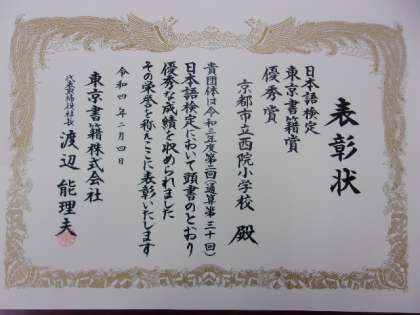 表彰状
日本語検定
東京書籍賞
優秀賞
京都市立西院小学校 殿
貴団体は令和三年度第二回(通算第三十回)
日本語検定において頭書のとおり
優秀な成績を収められました
その栄誉を称えここに表彰いたします
令和四年二月四日
東京書籍株式会社
代表取締役社長 渡辺能理夫